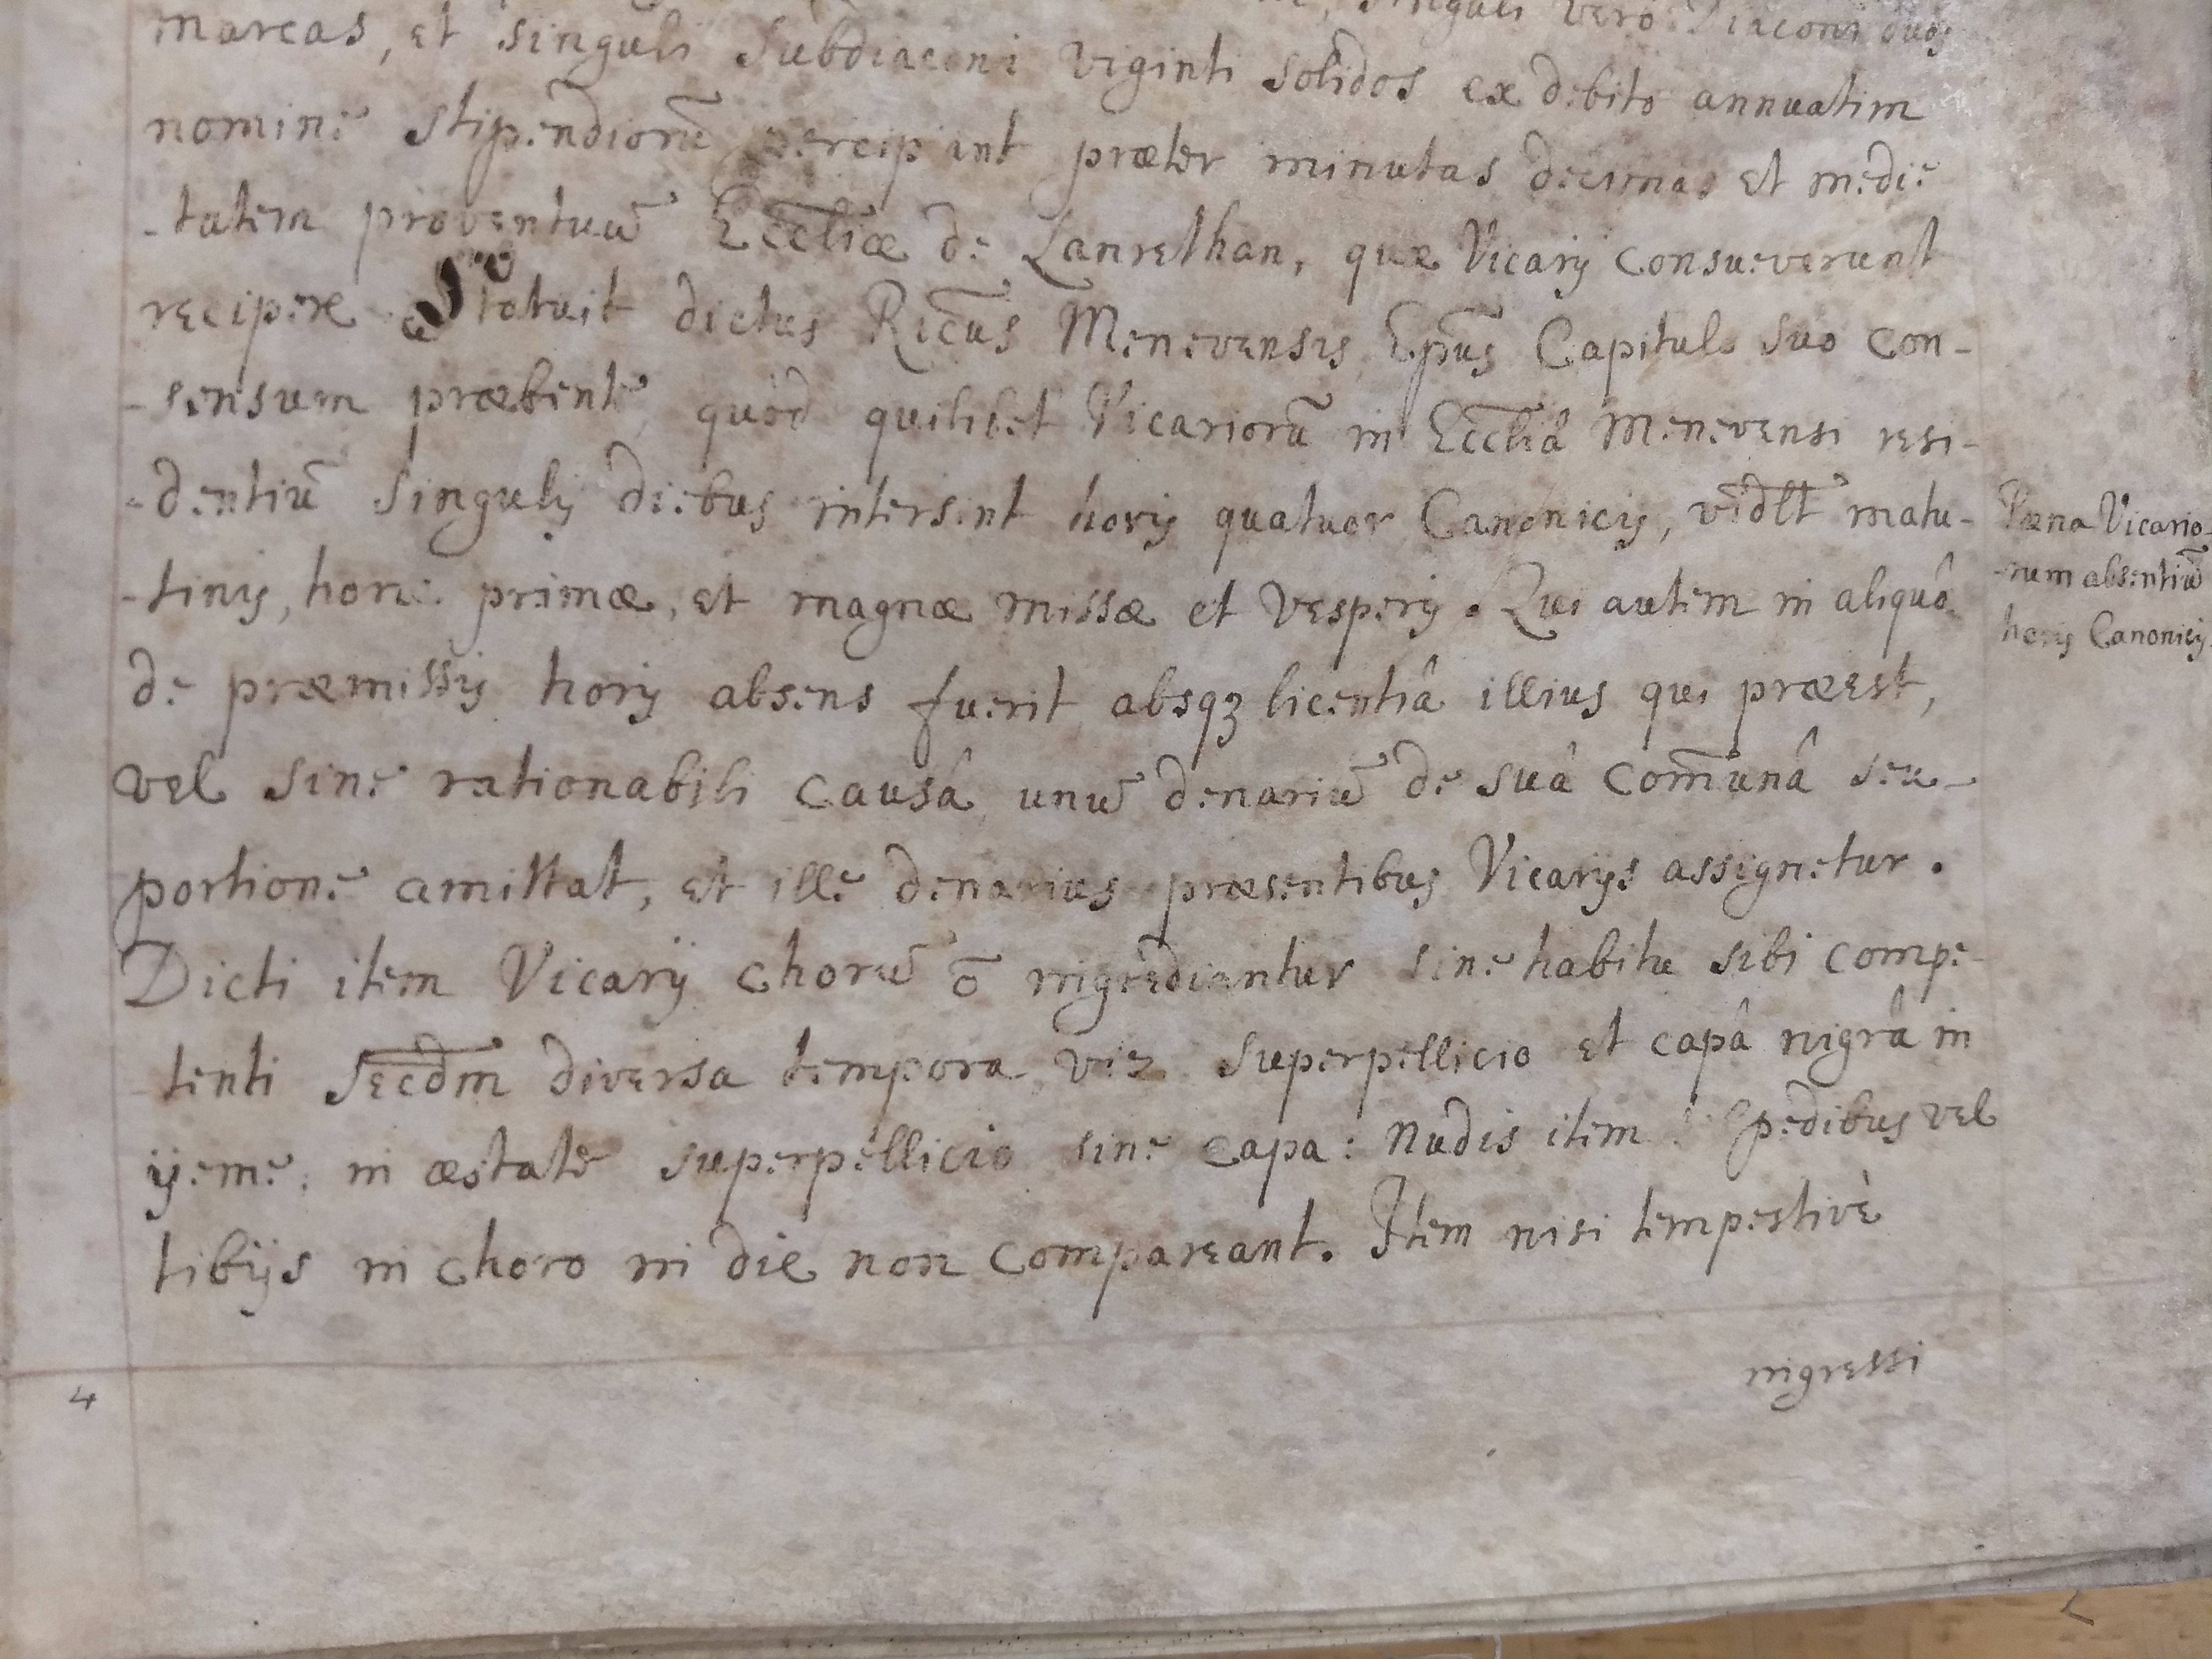 singuli vero Diaconi duas
marcas, et singuli Subdiaconi viginti solidos ex debito annuatim
nomine stipendiorū percipiant præter minutas decimas et medie
-tatem proventuū Eccliæ de Lanrethan, quæ Vicarij consueverunt
recipere Statuit dictus Ricūs Menevensis Epūs Capitulo suo con-
-sensum præbente, quòd quilibet Vicariorū in Eccliâ Menevensi resi-
-dentiū singulis diebus intersint horis quatuor Canonicis, vīdlt matu-
-tinis, horæ primæ, et magnæ missæ et vesperis. Qui autem in aliquâ
de præmissis horis absens fuerit absqȝ licentiâ illius qui præest,
vel sine rationabili causâ unū denariū de suâ com̄unâ seu
portione amittat, et ille denarius præsentibus Vicarijs assignetur.
Dicti item Vicarij chorū ō ingrediantur sine habitu sibi compe-
-tenti Secdm̄ diversa tempora viz superpellicio et capâ nigrâ in
ijeme, in æstate superpellicio sine capa: Nudis item pedibus vel
tibijs in choro in die non compareant. Item nisi tempestivè
ingressi
4
Pæna Vicario-
-rum absentiū
horis Canonicis